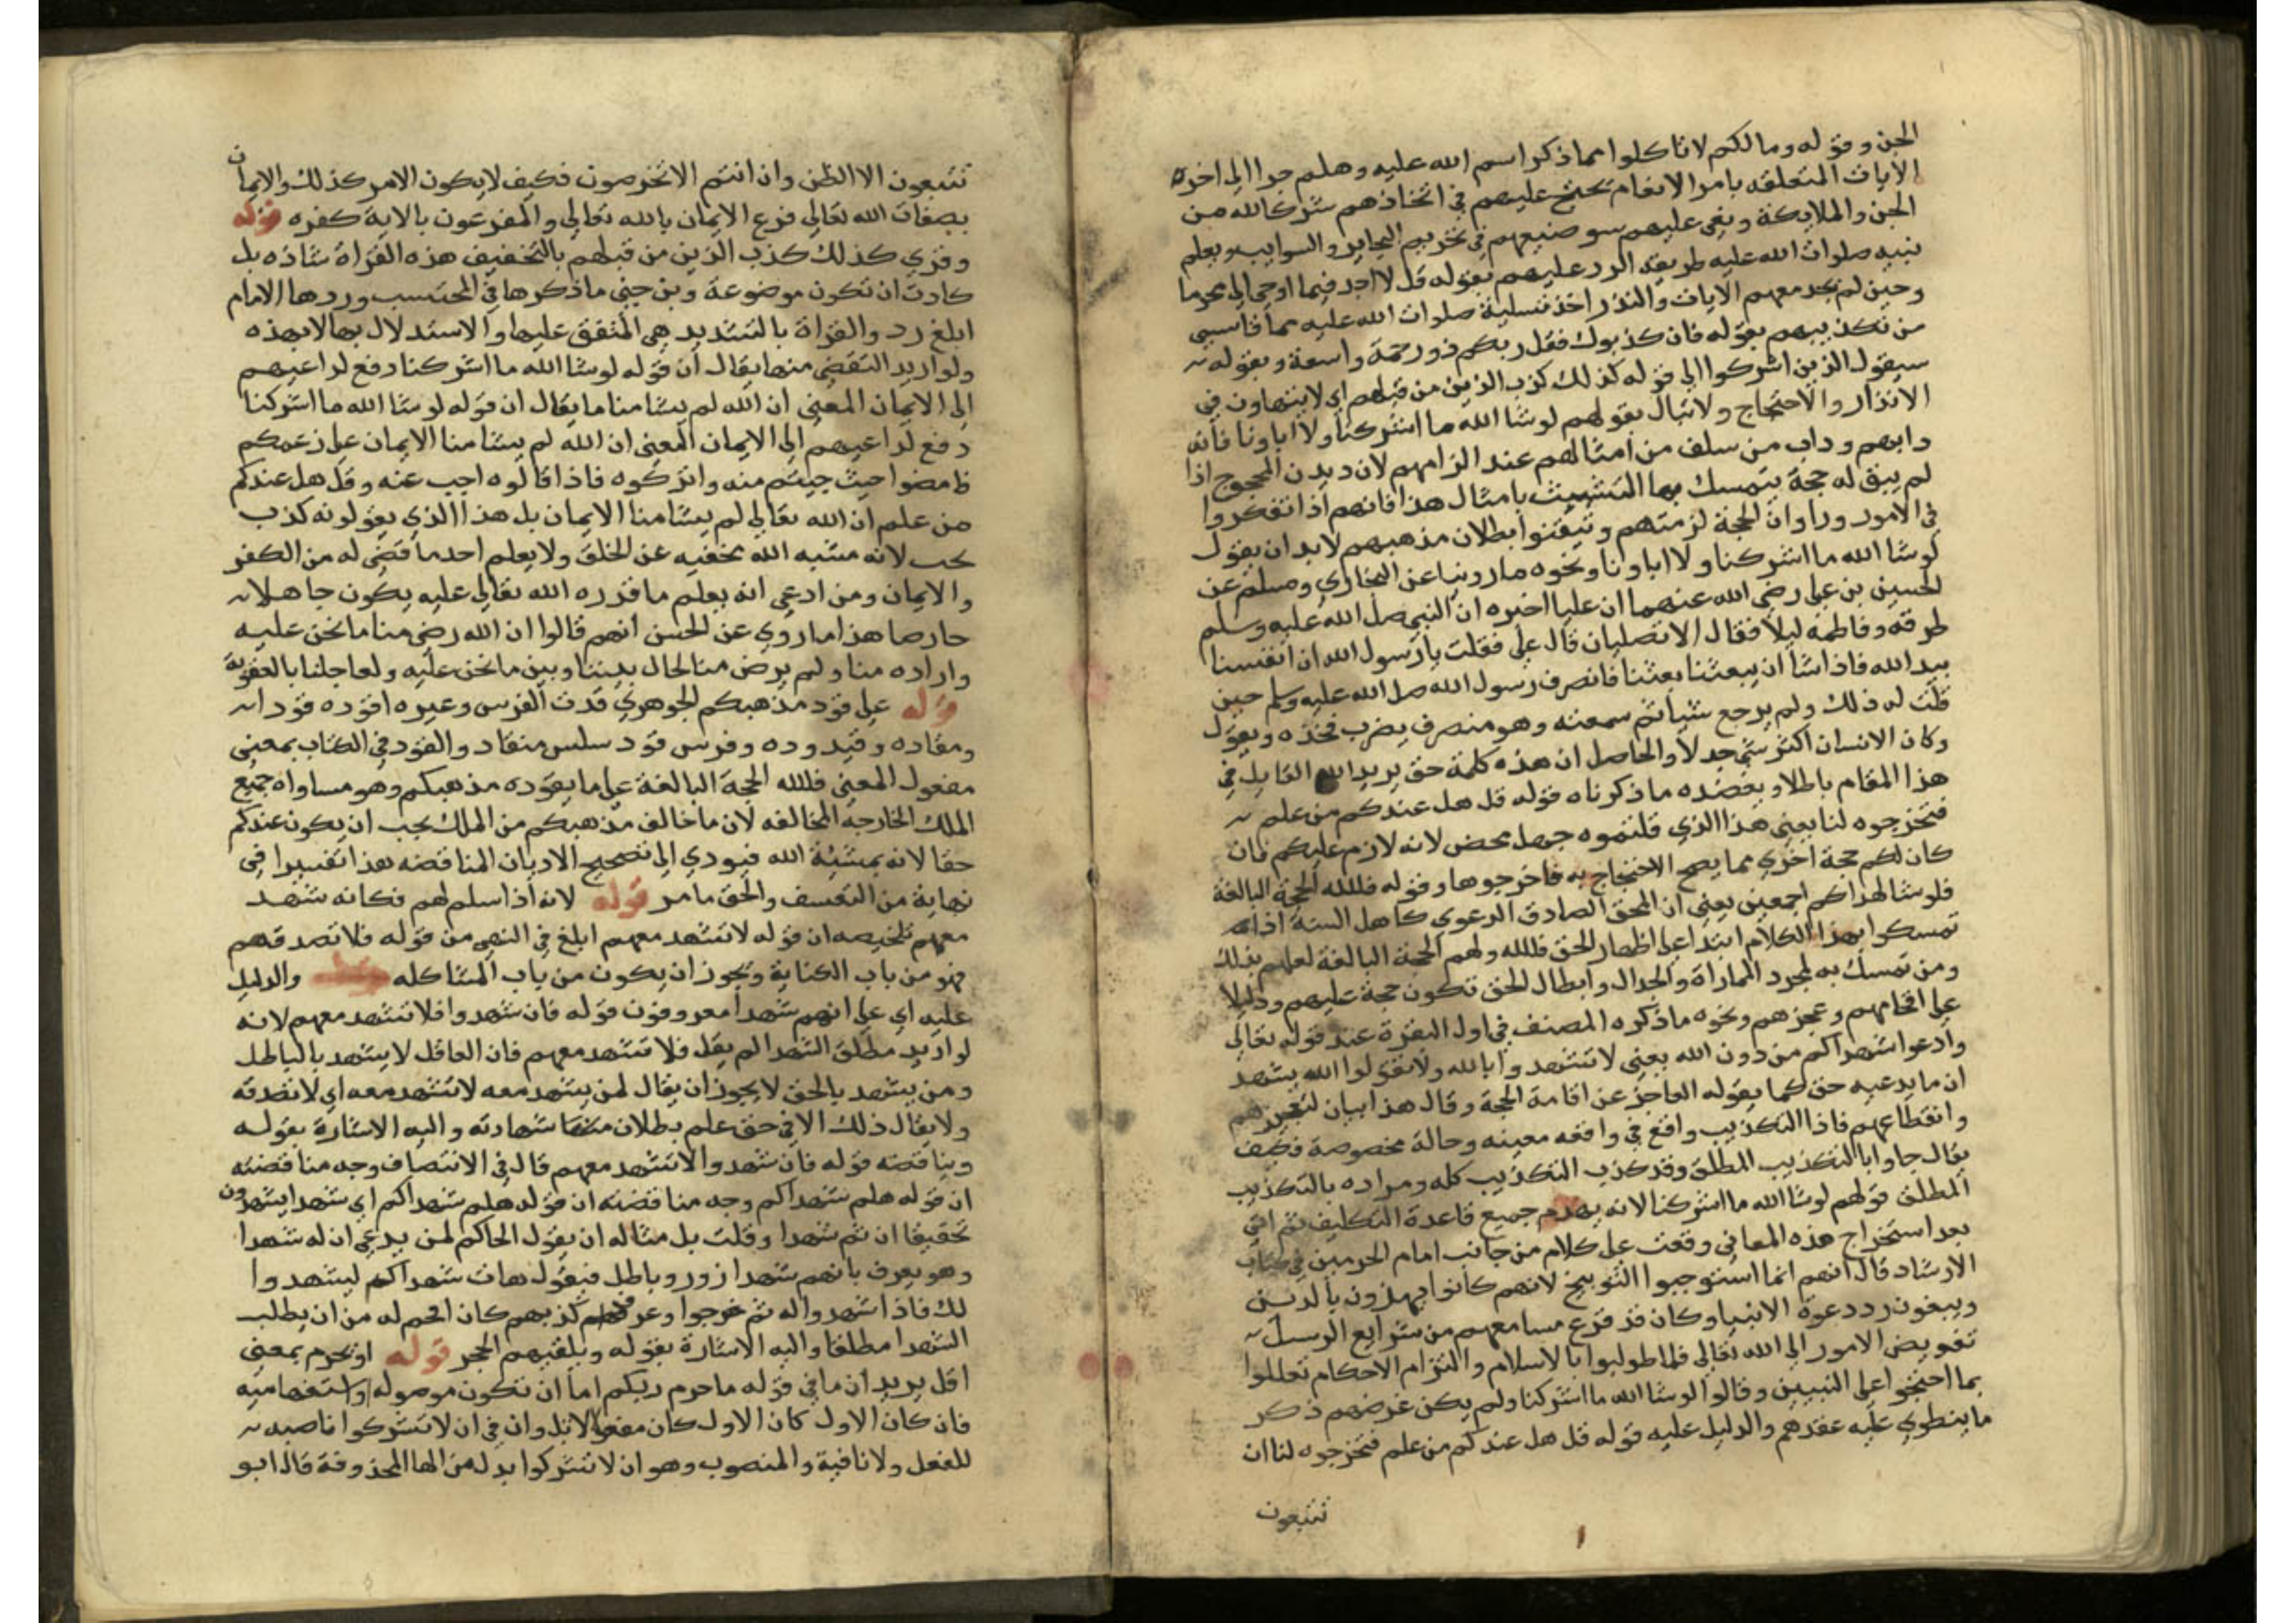 الجن وقوله وما لكم لا تاكلوا مما ذكر اسم الله عليه وهلم جرا الى اخره
الايات المتعلقه بامر الانعام يحتج عليهم في اتخاذهم شركا لله من
الجن والملايكة وينعي عليهم سو صنيعهم في تحريم البحاير والسوايب ويعلم
نبيه صلوات الله عليه طريقه الرد عليهم بقوله قل لا اجد فيما اوحي الي محرما
وحين لم يجد معهم الايات والنذر اخذ تسلية صلوات الله عليه مما قاسي
من تكذيبهم بقوله فان كذبوك فقل ربكم ذو رحمة واسعة وبقوله
سيقول الذين اشركوا الى قوله كذلك كذب الذين من قبلهم اي لا يتهاون في
الانذار والاحتجاج ولا تبال بقولهم لو شا الله ما اشركنا ولا اباونا فانه
دابهم وداب من سلف من امثالهم عند الزامهم لان ديدن المحجوج اذا
لم يبق له حجة يتمسك بها التشبث بامثال هذا فانهم اذا تفكروا
في الامور وراوا ان الحجة لزمتهم وتيقنوا بطلان مذهبهم لابد ان يقول
لو شا الله ما اشركنا ولا اباونا ونحوه ما روينا عن البخاري ومسلم عن
الحسين بن علي رضي الله عنهما ان عليا اخبره ان النبي صلى الله عليه وسلم
طرقه وفاطمة ليلا فقال الا تصليان قال علي فقلت يا رسول الله ان انفسنا
بيد الله فاذا شا ان يبعثنا بعثنا فانصرف رسول الله صلى الله عليه وسلم حين
قلت له ذلك ولم يرجع شيا ثم سمعته وهو منصرف يضرب فخذه ويقول
وكان الانسان اكثر شي جدلا والحاصل ان هذه كلمة حق يريد القايل في
هذا المقام باطلا ويعضده ما ذكرناه قوله قل هل عندكم من علم
فتخرجوه لنا يعني هذا الذي قلتموه جهل محض لانه لازم عليكم فان
كان لكم حجة اخرى مما يصح الاحتجاج به فاخرجوها وقوله فلله الحجة البالغة
فلو شا لهداكم اجمعين يعني ان المحق الصادق الدعوي كاهل السنة اذا
تمسكوا بهذا الكلام ابتدا على اظهار الحق فلله ولهم الحجة البالغة لعلهم بذلك
ومن تمسك به لمجرد المماراة والجدال وابطال الحق تكون حجة عليهم ودليلا
على افحامهم وعجزهم ونحوه ما ذكره المصنف في اول البقرة عند قوله تعالى
وادعوا شهداكم من دون الله يعني لا تستشهدوا بالله ولا تقولوا الله يشهد
ان ما يدعيه حق كما يقوله العاجز عن اقامة الحجة وقال هذا بيان لتعجزهم
وانقطاعهم فاذا التكذيب واقع في واقعه معينه وحالة مخصوصة فكيف
يقال جاوا بالتكذيب المطلق وقد كذب التكذيب كله ومراده بالتكذيب
المطلق قولهم لو شا الله ما اشركنا لانه يهدم جميع قاعدة التكليف ثم اني
بعد استخراج هذه المعاني وقعت على كلام من جانب امام الحرمين في كتاب
الارشاد قال انهم انما استوجبوا التوبيخ لانهم كانوا يهزون بالدين
ويبغون رد دعوة الانبيا وكان قد قرع مسامعهم من شرايع الرسل
تفويض الامور الى الله تعالى فلما طولبوا بالاسلام والتزام الاحكام تعللوا
بما احتجوا على النبيين وقالوا لو شا الله ما اشركنا ولم يكن غرضهم ذكر
ما ينطوي عليه عقدهم والدليل عليه قوله قل هل عندكم من علم فتخرجوه لنا ان
تتبعون
تتبعون الا الظن وان انتم الا تخرصون فكيف لا يكون الامر كذلك والايمان
بصفات الله تعالى فرع الايمان بالله تعالى والمفرعون بالاية كفره قوله
وقري كذلك كذب الذين من قبلهم بالتخفيف هذه القراة شاذه بل
كادت ان تكون موضوعة وبن جني ما ذكرها في المحتسب وردها الامام
ابلغ رد والقراة بالتشديد هي المتفق عليها والاستدلال بها لا بهذه
ولو اريد التقضي منها يقال ان قوله لو شا الله ما اشركنا دفع لداعيهم
الى الايمان المعني ان الله لم يشا منا ما يقال ان قوله لو شا الله ما اشركنا
دفع لداعيهم الى الايمان المعني ان الله لم يشا منا الايمان على زعمكم
فامضوا حيث جيتم منه واتركوه فاذا قالوه اجب عنه وقل هل عندكم
من علم ان الله تعالى لم يشا منا الايمان بل هذا الذي يقولونه كذب
بحت لانه مشيه الله مخفيه عن الخلق ولا يعلم احد ما قضي له من الكفر
والايمان ومن ادعي انه يعلم ما قدره الله تعالى عليه يكون جاهلا
خارصا هذا ما روي عن الحسن انهم قالوا ان الله رضي منا ما نحن عليه
واراده منا ولم يرض منا لحال بيننا وبين ما نحن عليه ولعاجلنا بالعقوبة
قوله على قود مذهبكم الجوهري قدت الفرس وغيره اقوده قودا
ومقاده وقيدوده وفرس قود سلس منقاد والقود في الكتاب بمعنى
مفعول المعني فلله الحجة البالغة على ما يقوده مذهبكم وهو مساواه جميع
الملل الخارجه المخالفه لان ما خالف مذهبكم من الملل يجب ان يكون عندكم
حقا لانه بمشيئة الله فيودي الى تصحيح الاديان المناقضه هذا تفسيرا في
نهاية من التعسف والحق ما مر قوله لانه اذا سلم لهم فكانه شهد
معهم تلخيصه ان قوله لا تشهد معهم ابلغ في النهي من قوله فلا تصدقهم
فهو من باب الكناية ويجوز ان يكون من باب المشاكله والدليل
عليه اي على انهم شهدا معروفون قوله فان شهدوا فلا تشهد معهم لانه
لو اريد مطلق الشهدا لم يقل فلا تشهد معهم فان العاقل لا يشهد بالباطل
ومن يشهد بالحق لا يجوز ان يقال لمن يشهد معه لا تشهد معه اي لا تصدقه
ولا يقال ذلك الا في حق علم بطلان شهادته واليه الاشارة بقوله
ويناقضه قوله فان شهدوا لا تشهد معهم قال في الانتصاف وجه مناقضته
ان قوله هلم شهداكم وجه مناقضته ان قوله هلم شهداكم اي شهدا يشهدون
تحقيقا ان ثم شهدا وقلت بل مثاله ان يقول الحاكم لمن يدعي ان له شهدا
وهو يعرف بانهم شهدا زور وباطل فيقول هات شهداكم ليشهدوا
لك فاذا شهدوا له ثم خرجوا وعرفهم كذبهم كان افحم له من ان يطلب
الشهدا مطلقا واليه الاشارة بقوله ويلقيهم الحجر قوله او تحرم بمعنى
اقل يريد ان ما في قوله ما حرم ربكم اما ان تكون موصوله او استفهاميه
فان كان الاول كان الاول كان مفعولا لاتل وان في ان لا تشركوا ناصبه
للفعل ولا نافية والمنصوب وهو ان لا تشركوا بدل من الها المحذوفة قال ابو